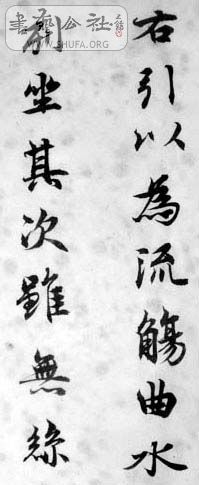 右引以為流觴曲水
列坐其次雖無絲
書法公社
WWW.SHUFA.ORG